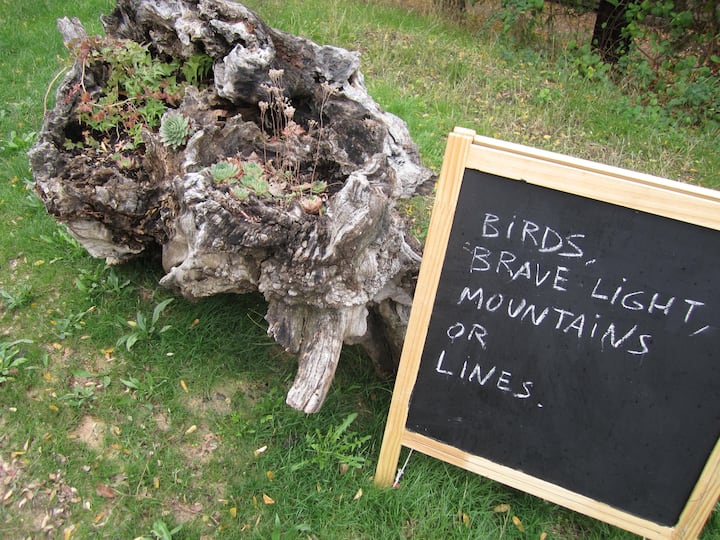 BiRDS,
BRAVE LiGHT,
MOUNTAiNS
OR
LiNES.